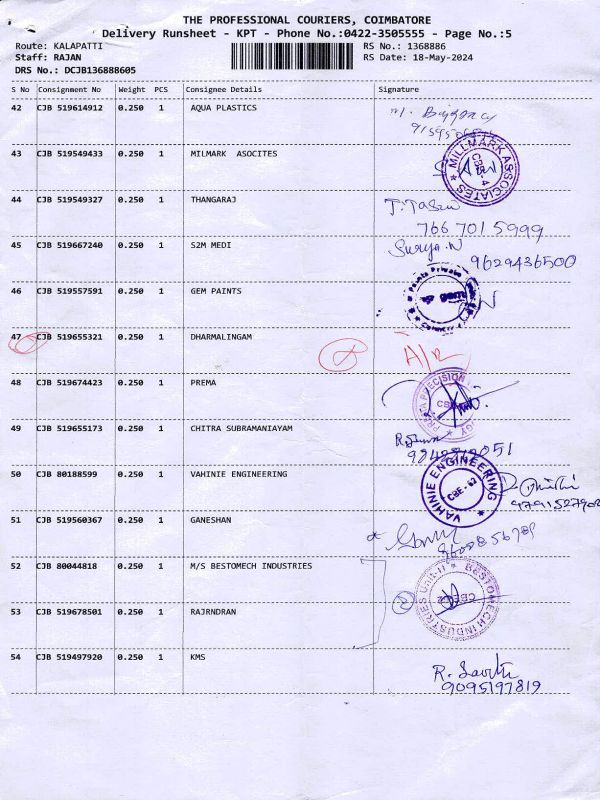 THE PROFESSIONAL COURIERS, COIMBATORE
Delivery Runsheet - KPT - Phone No.:0422-3505555 - Page No.:5
Route: KALAPATTI RS No.: 1368886
Staff: RAJAN RS Date: 18-May-2024
DRS No.: DCJB136888605
S No Consignment No Weight PCS Consignee Details Signature
42 CJB 519614912 0.250 1 AQUA PLASTICS
43 CJB 519549433 0.250 1 MILMARK ASOCITES
MILLMARK ASSOCIATES CBE-4
44 CJB 519549327 0.250 1 THANGARAJ
766 701 5999
45 CJB 519667240 0.250 1 S2M MEDI Surya.N
9629436500
46 CJB 519557591 0.250 1 GEM PAINTS
47 CJB 519655321 0.250 1 DHARMALINGAM A/R
48 CJB 519674423 0.250 1 PREMA
49 CJB 519655173 0.250 1 CHITRA SUBRAMANIAYAM
50 CJB 80188599 0.250 1 VAHINIE ENGINEERING
VAHINIE ENGINEERING CBE-62
51 CJB 519560367 0.250 1 GANESHAN
52 CJB 80044818 0.250 1 M/S BESTOMECH INDUSTRIES
BESTOMECH INDUSTRIES Unit-II
2
53 CJB 519678501 0.250 1 RAJRNDRAN
54 CJB 519497920 0.250 1 KMS
9095197819